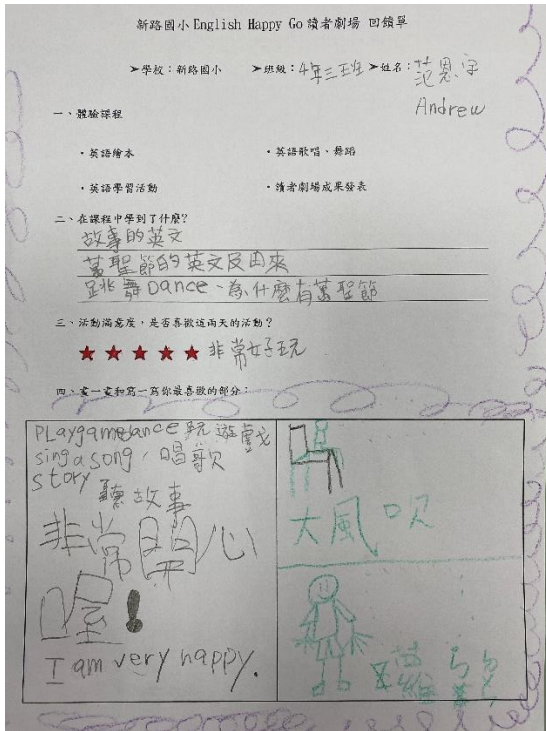 新路國小 English Happy Go 讀者劇場 回饋單
➤學校：新路國小 ➤班級：4年三班 ➤姓名：范恩宇
Andrew
一、體驗課程
・英語繪本 ・英語歌唱、舞蹈
・英語學習活動 ・讀者劇場成果發表
二、在課程中學到了什麼?
故事的英文
萬聖節的英文及由來
跳舞Dance、為什麼有萬聖節
三、活動滿意度，是否喜歡這兩天的活動?
★★★★★ 非常好玩
四、畫一畫和寫一寫你最喜歡的部分：
PLaygamedance 玩遊戲
sing a song，唱歌
story
聽故事
非常開心
喔！
I am very happy.
大風吹